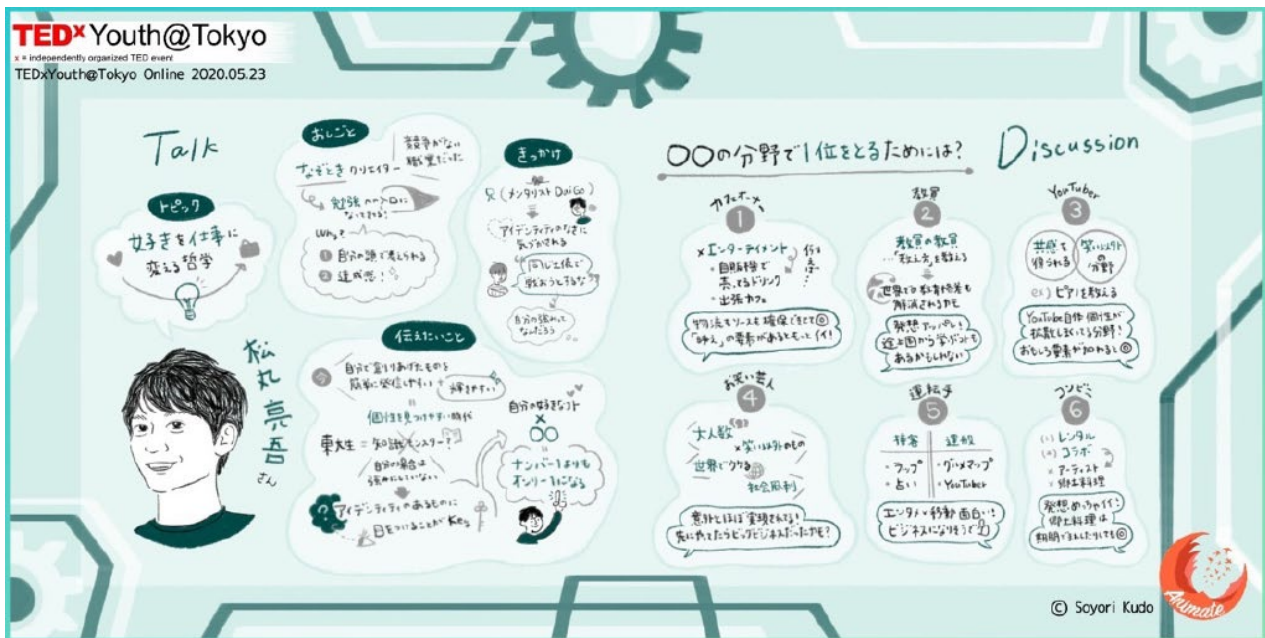 TEDxYouth@Tokyo
x = independently organized TED event
TEDxYouth@Tokyo Online 2020.05.23
Talk
トピック
好きを仕事に
変える哲学
松丸亮吾
さん
おしごと
なぞときクリエイター
競争がない
職業だった
勉強への入口に
なってる!
Why?
① 自分の頭で考えられる
② 達成感!
きっかけ
兄(メンタリストDaiGo)
アイデンティティのなさに
気づかされる
同じ土俵で
戦おうとするな
自分の強みって
なんだろう
伝えたいこと
今
自分で創りあげたものを
簡単に発信しやすい
輝きやすい
個性を見つけやすい時代
東大生=知識モンスター?
自分の場合は
強みにしていない
アイデンティティのあるものに
目をつけることがKey
自分の好きなコト
×
〇〇
ナンバー1よりも
オンリー1になる
〇〇の分野で1位をとるためには?
Discussion
カフェオーナー
1
×エンターテイメント
例えば…
・自販機で
売ってるドリンク
・出張カフェ
物流もソースも確保できて◎
「映え」の要素があるともっとイイ!
教員
2
教員の教員
…「教え方」を教える
世界での教育格差も
解消されるかも
発想アッパレ!
途上国から学ぶコトも
あるかもしれない
YouTuber
3
共感を
得られる
笑い以外
の
分野
ex)ピアノを教える
YouTube自体個性が
拡散しまくってる分野!
おもしろ要素が加わると◎
お笑い芸人
4
大人数
×笑い以外のもの
世界でウケる
社会風刺
意外とほぼ実現されてる!
先にやってたらビッグビジネスだったかも?
運転手
5
接客
運搬
・ラップ
・占い
・グルメマップ
・YouTuber
エンタメ×移動 面白い!
ビジネスになりそう
コンビニ
6
(1)レンタル
(2)コラボ
×アーティスト
×郷土料理
発想めっちゃイイ!
郷土料理は
期間で変えたりしても◎
© Soyori Kudo
Animate